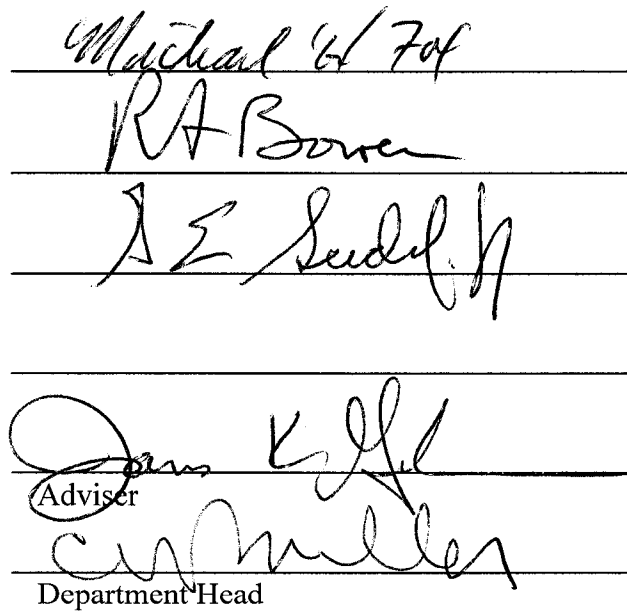 Michael Fox
RA Bowen
G E Seidel Jr
K
Adviser
Miller
Department Head